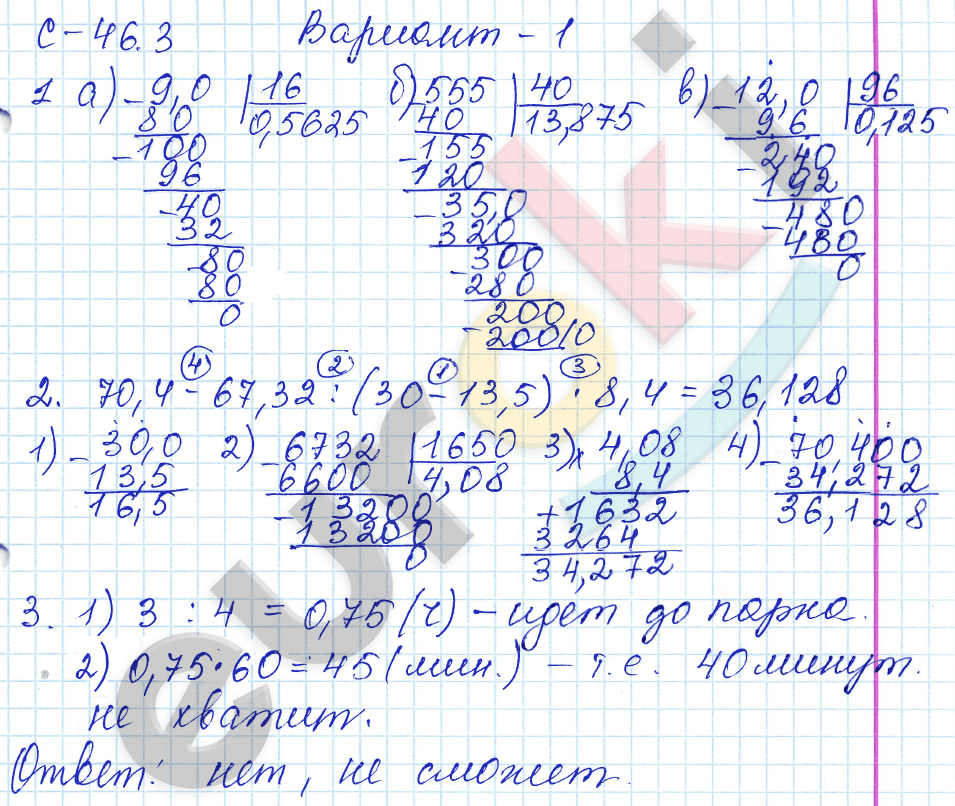 С-46.3 Вариант - 1
1 а) -9,0 | 16 б) -555 | 40 в) -12,0 | 96
80 0,5625 40 13,875 -9 6 0,125
-100 -155 2,40
96 120 -192
-40 -35,0 -480
32 320 480
-80 -300 0
80 280
0 -200
200/0
④ ② ① ③
2. 70,4 - 67,32 : (30 - 13,5) · 8,4 = 36,128
1) -30,0 2) -6732 | 1650 3) x 4,08 4) -70,400
13,5 6600 4,08 8,4 34,272
16,5 -13200 +1632 36,128
13200 3264
0 34,272
3. 1) 3 : 4 = 0,75 (ч) - идёт до парка.
2) 0,75·60 = 45 (мин.) - т.е. 40 минут.
не хватит.
Ответ: нет, не сможет.
euroki